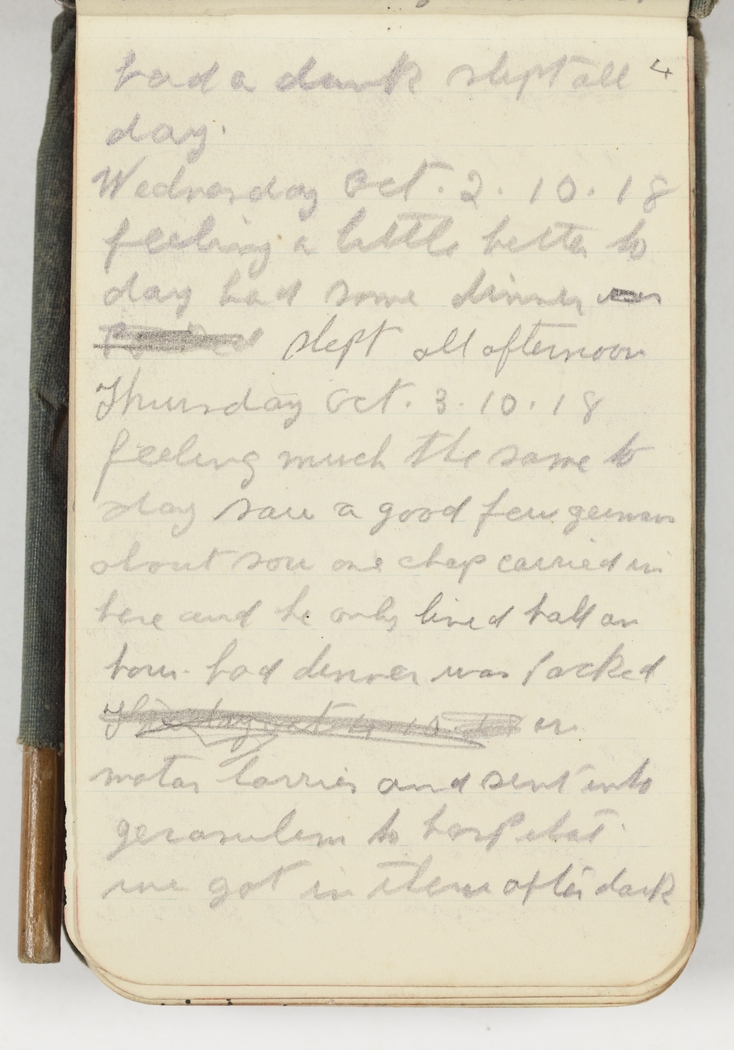 4
had a dunk slept all
day.
Wednesday Oct. 2. 10. 18
feeling a little better to
day had some dinner
slept all afternoon
Thursday Oct. 3. 10. 18
feeling much the same to
day saw a good few germans
about sou one chap carried in
here and he only lived half an
hour. had dinner was packed
on
motar lorries and sent into
gerasulem to hospital.
we got in there after dark